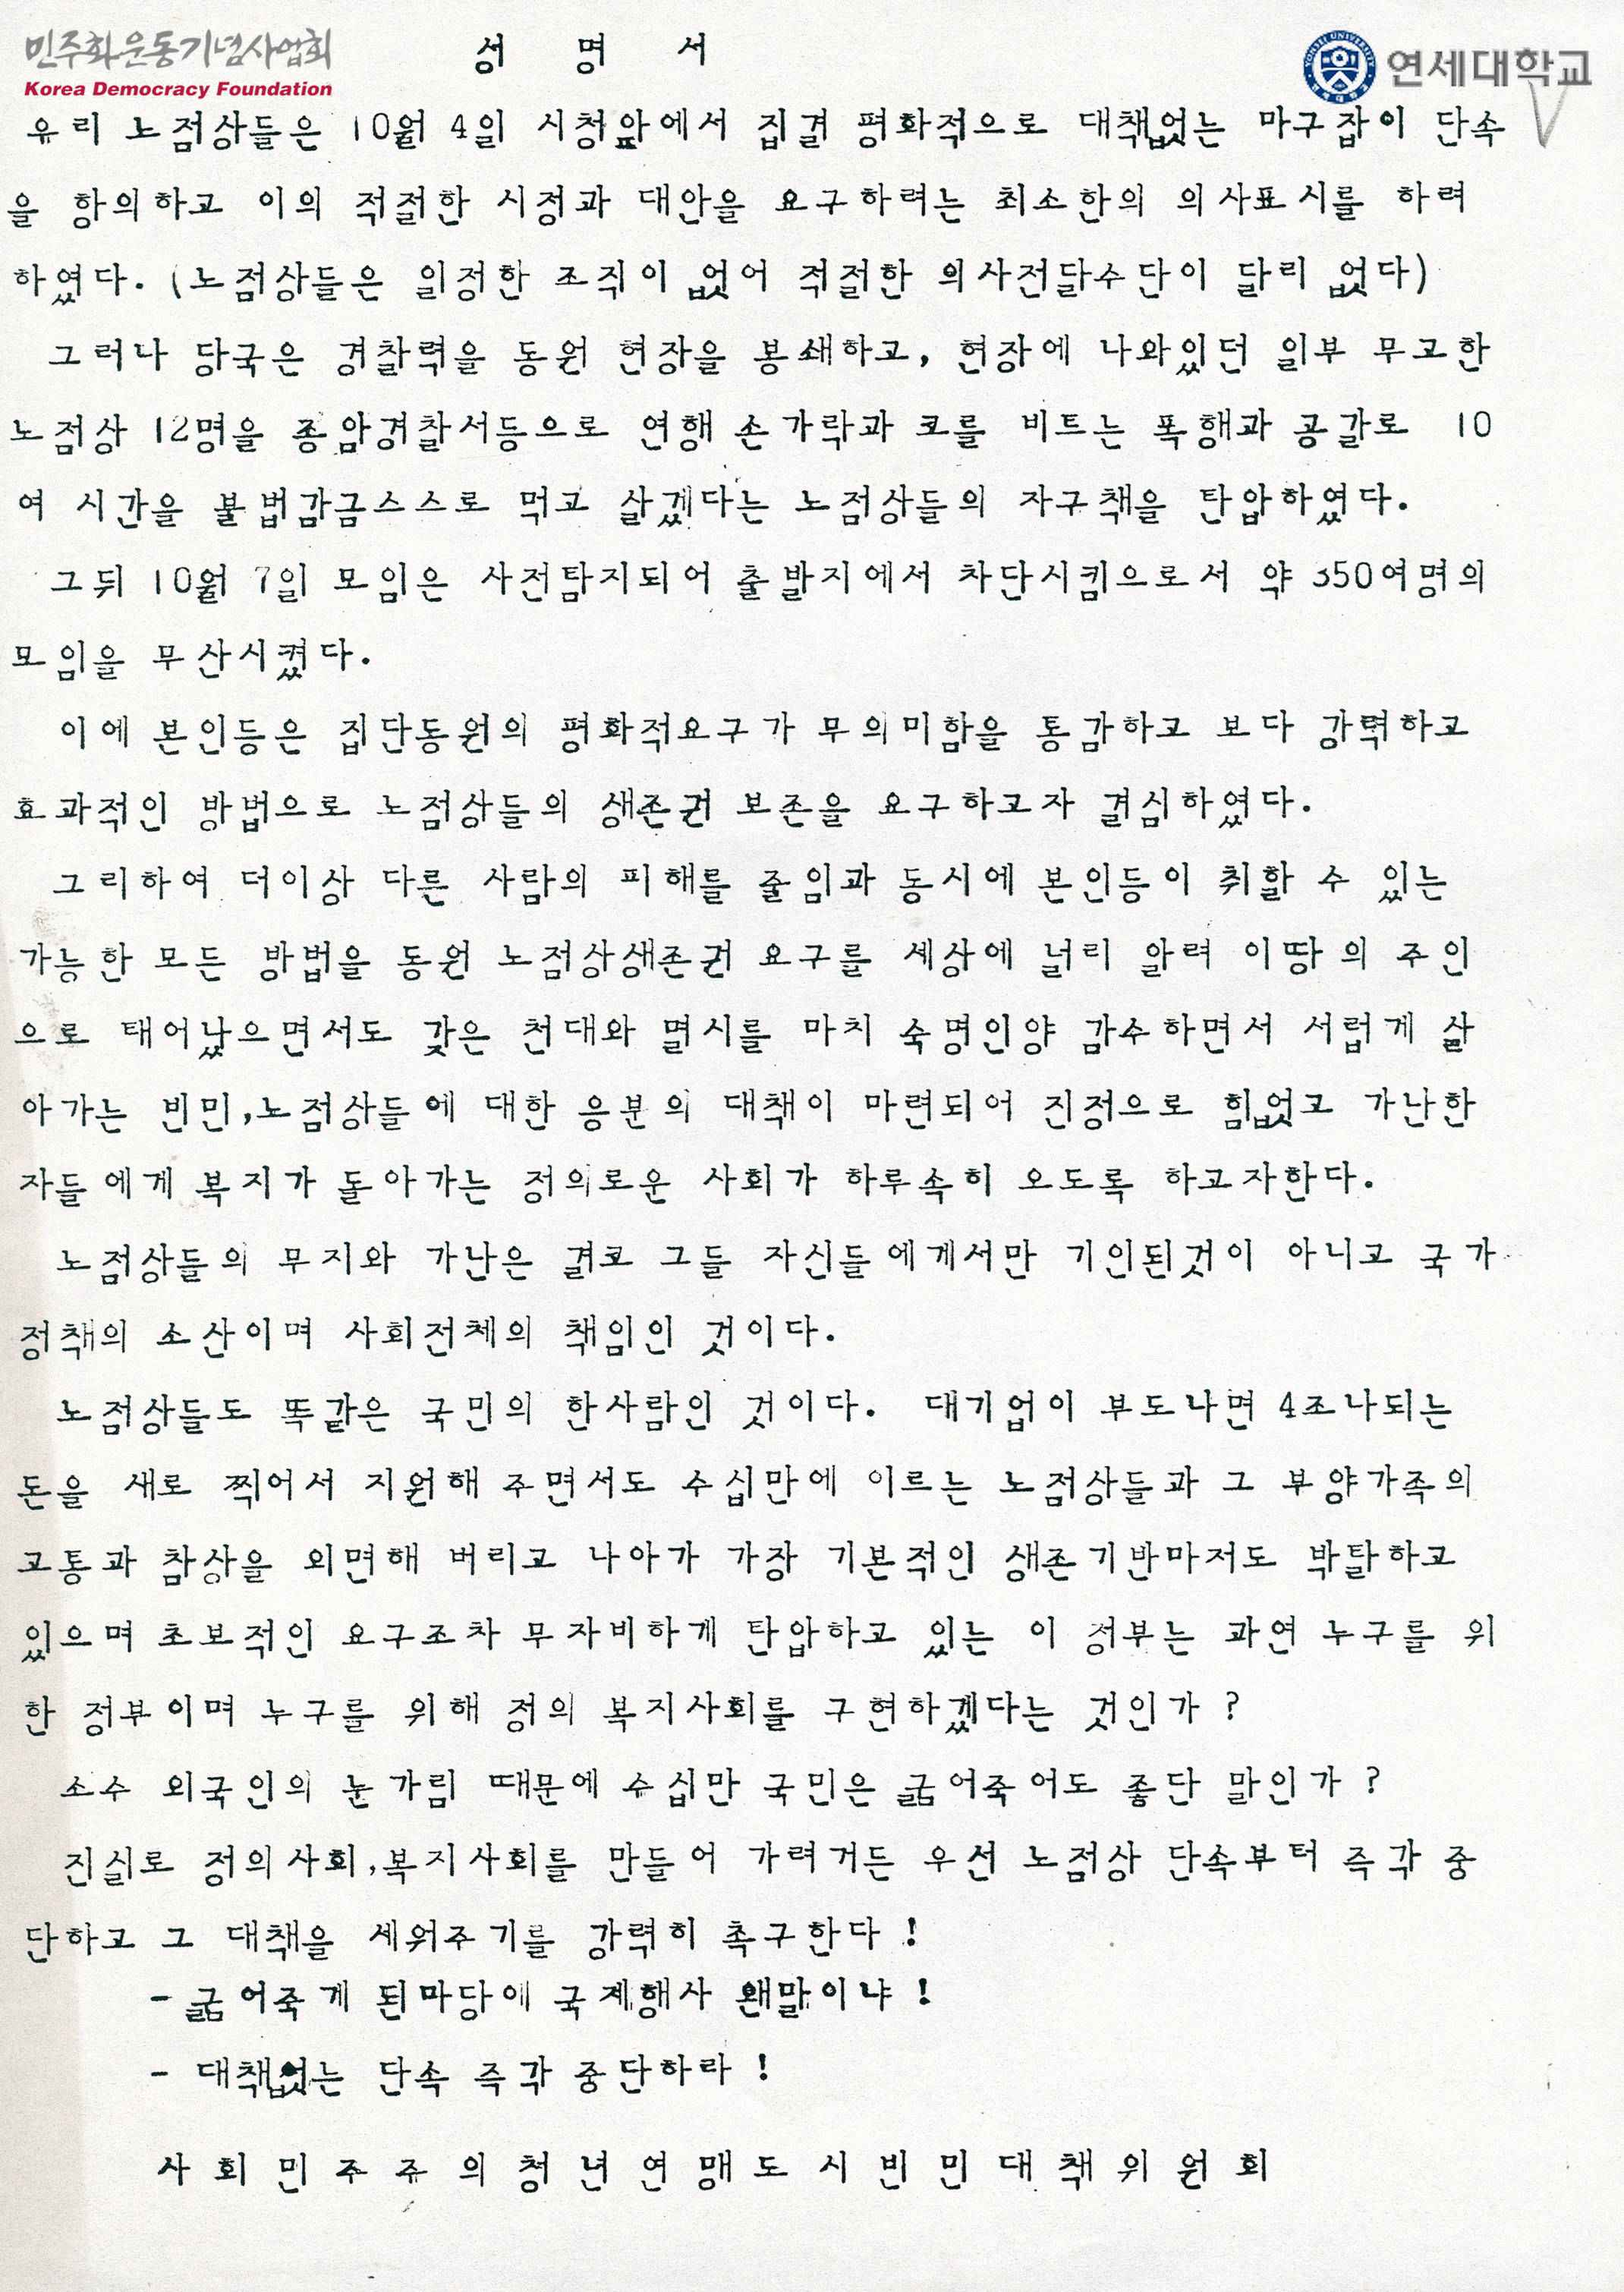 민주화운동기념사업회
Korea Democracy Foundation
성 명 서
연세대학교
우리 노점상들은 10월 4일 시청앞에서 집결 평화적으로 대책없는 마구잡이 단속
을 항의하고 이의 적절한 시정과 대안을 요구하려는 최소한의 의사표시를 하려
하였다. (노점상들은 일정한 조직이 없어 적절한 의사전달수단이 달리 없다)
그러나 당국은 경찰력을 동원 현장을 봉쇄하고, 현장에 나와있던 일부 무고한
노점상 12명을 종암경찰서등으로 연행 손가락과 코를 비트는 폭행과 공갈로 10
여 시간을 불법감금스스로 먹고 살겠다는 노점상들의 자구책을 탄압하였다.
그뒤 10월 7일 모임은 사전탐지되어 출발지에서 차단시킴으로서 약 350여명의
모임을 무산시켰다.
이에 본인등은 집단동원의 평화적요구가 무의미함을 통감하고 보다 강력하고
효과적인 방법으로 노점상들의 생존권 보존을 요구하고자 결심하였다.
그리하여 더이상 다른 사람의 피해를 줄임과 동시에 본인등이 취할 수 있는
가능한 모든 방법을 동원 노점상생존권 요구를 세상에 널리 알려 이땅의 주인
으로 태어났으면서도 갖은 천대와 멸시를 마치 숙명인양 감수하면서 서럽게 살
아가는 빈민,노점상들에 대한 응분의 대책이 마련되어 진정으로 힘없고 가난한
자들에게 복지가 돌아가는 정의로운 사회가 하루속히 오도록 하고자한다.
노점상들의 무지와 가난은 결코 그들 자신들에게서만 기인된것이 아니고 국가
정책의 소산이며 사회전체의 책임인 것이다.
노점상들도 똑같은 국민의 한사람인 것이다. 대기업이 부도나면 4조나되는
돈을 새로 찍어서 지원해 주면서도 수십만에 이르는 노점상들과 그 부양가족의
고통과 참상을 외면해 버리고 나아가 가장 기본적인 생존기반마저도 박탈하고
있으며 초보적인 요구조차 무자비하게 탄압하고 있는 이 정부는 과연 누구를 위
한 정부이며 누구를 위해 정의 복지사회를 구현하겠다는 것인가 ?
소수 외국인의 눈가림 때문에 수십만 국민은 굶어죽어도 좋단 말인가 ?
진실로 정의사회,복지사회를 만들어 가려거든 우선 노점상 단속부터 즉각 중
단하고 그 대책을 세워주기를 강력히 촉구한다 !
- 굶어죽게 된마당에 국제행사 왠말이냐 !
- 대책없는 단속 즉각 중단하라 !
사 회 민 주 주 의 청 년 연 맹 도 시 빈 민 대 책 위 원 회